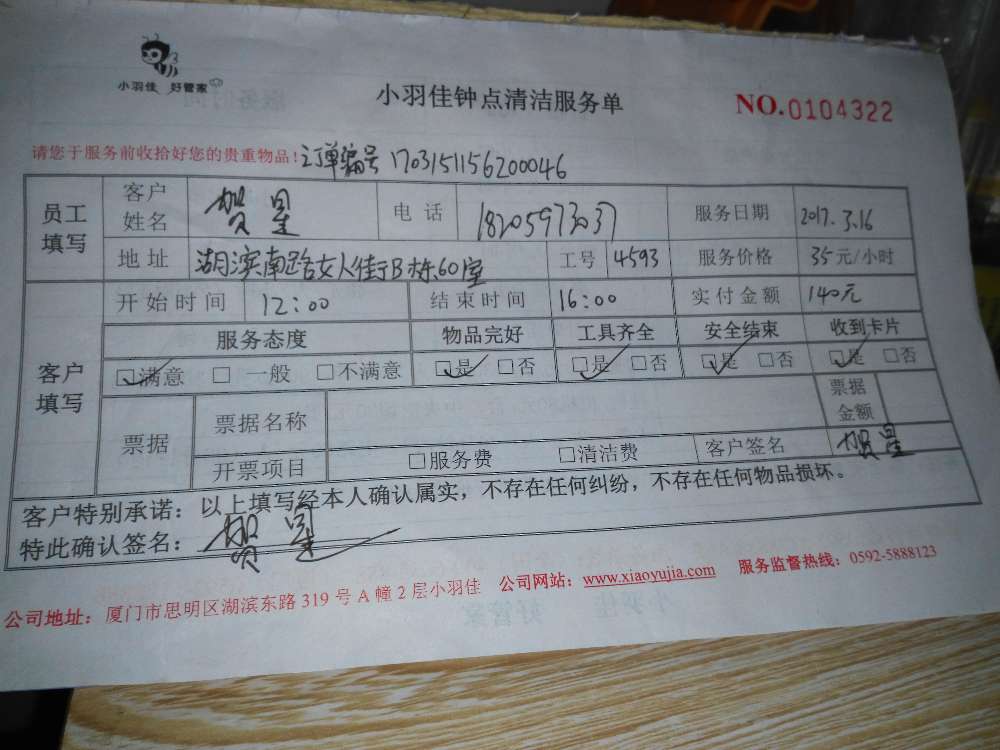 小羽佳 好管家
小羽佳钟点清洁服务单
NO.0104322
请您于服务前收拾好您的贵重物品! 订单编号 1703151156200046
员工填写 客户姓名 贺星 电话 18205973037 服务日期 2017.3.16
地址 湖滨南路女人街B栋60室 工号 4593 服务价格 35元/小时
客户填写 开始时间 12:00 结束时间 16:00 实付金额 140元
服务态度 物品完好 工具齐全 安全结束 收到卡片
☑满意 □一般 □不满意 ☑是 □否 ☑是 □否 ☑是 □否 ☑是 □否
票据 票据名称 票据金额
开票项目 □服务费 □清洁费 客户签名 贺星
客户特别承诺：以上填写经本人确认属实，不存在任何纠纷，不存在任何物品损坏。
特此确认签名：贺星
公司地址：厦门市思明区湖滨东路319号A幢2层小羽佳 公司网站：www.xiaoyujia.com 服务监督热线：0592-5888123